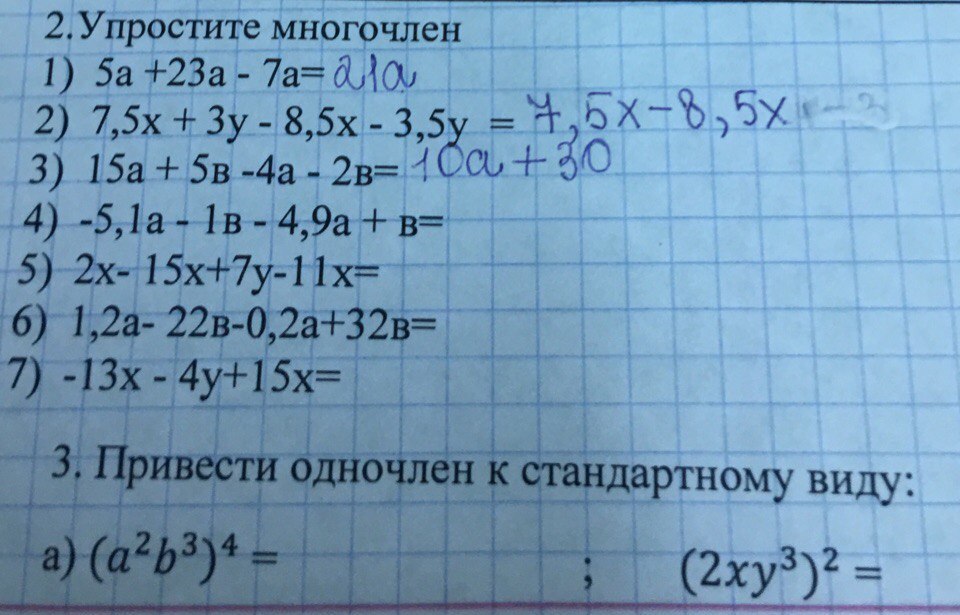 2. Упростите многочлен
1) 5а +23а - 7а= 21а
2) 7,5х + 3у - 8,5х - 3,5у = 7,5х-8,5х
3) 15а + 5в -4а - 2в= 10а+30
4) -5,1а - 1в - 4,9а + в=
5) 2х- 15х+7у-11х=
6) 1,2а- 22в-0,2а+32в=
7) -13х - 4у+15х=
3. Привести одночлен к стандартному виду:
а) (a²b³)⁴ = ; (2xy³)² =